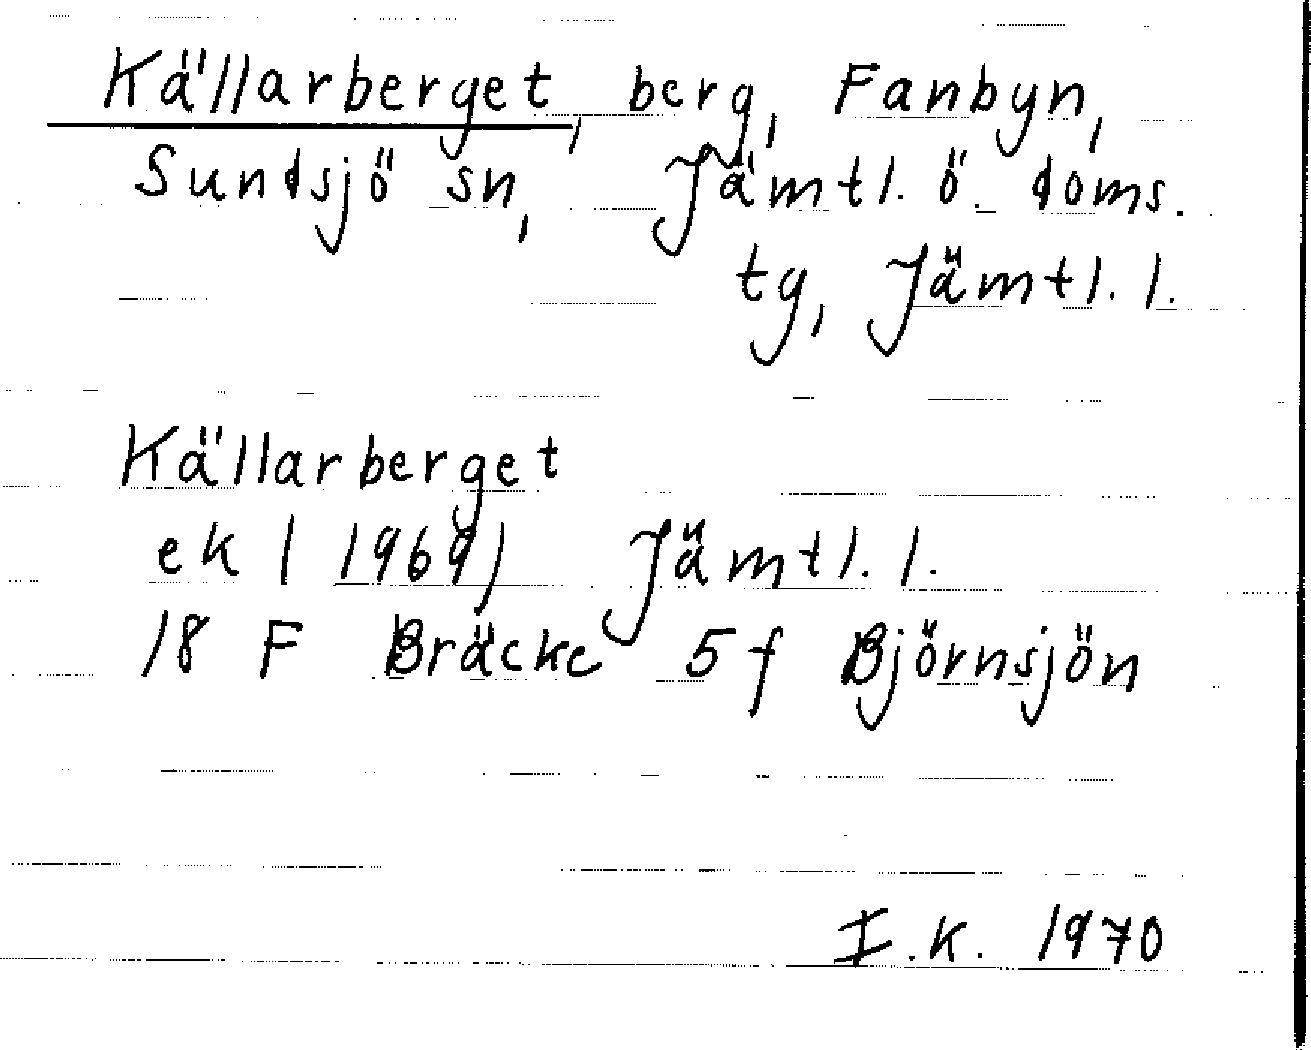 Källarberget, berg, Fanbyn,
Sundsjö sn, Jämtl. ö. doms.
tg, Jämtl. l.
Källarberget
ek (1969) Jämtl. l.
18 F Bräcke 5 f Björnsjön
I.K. 1970